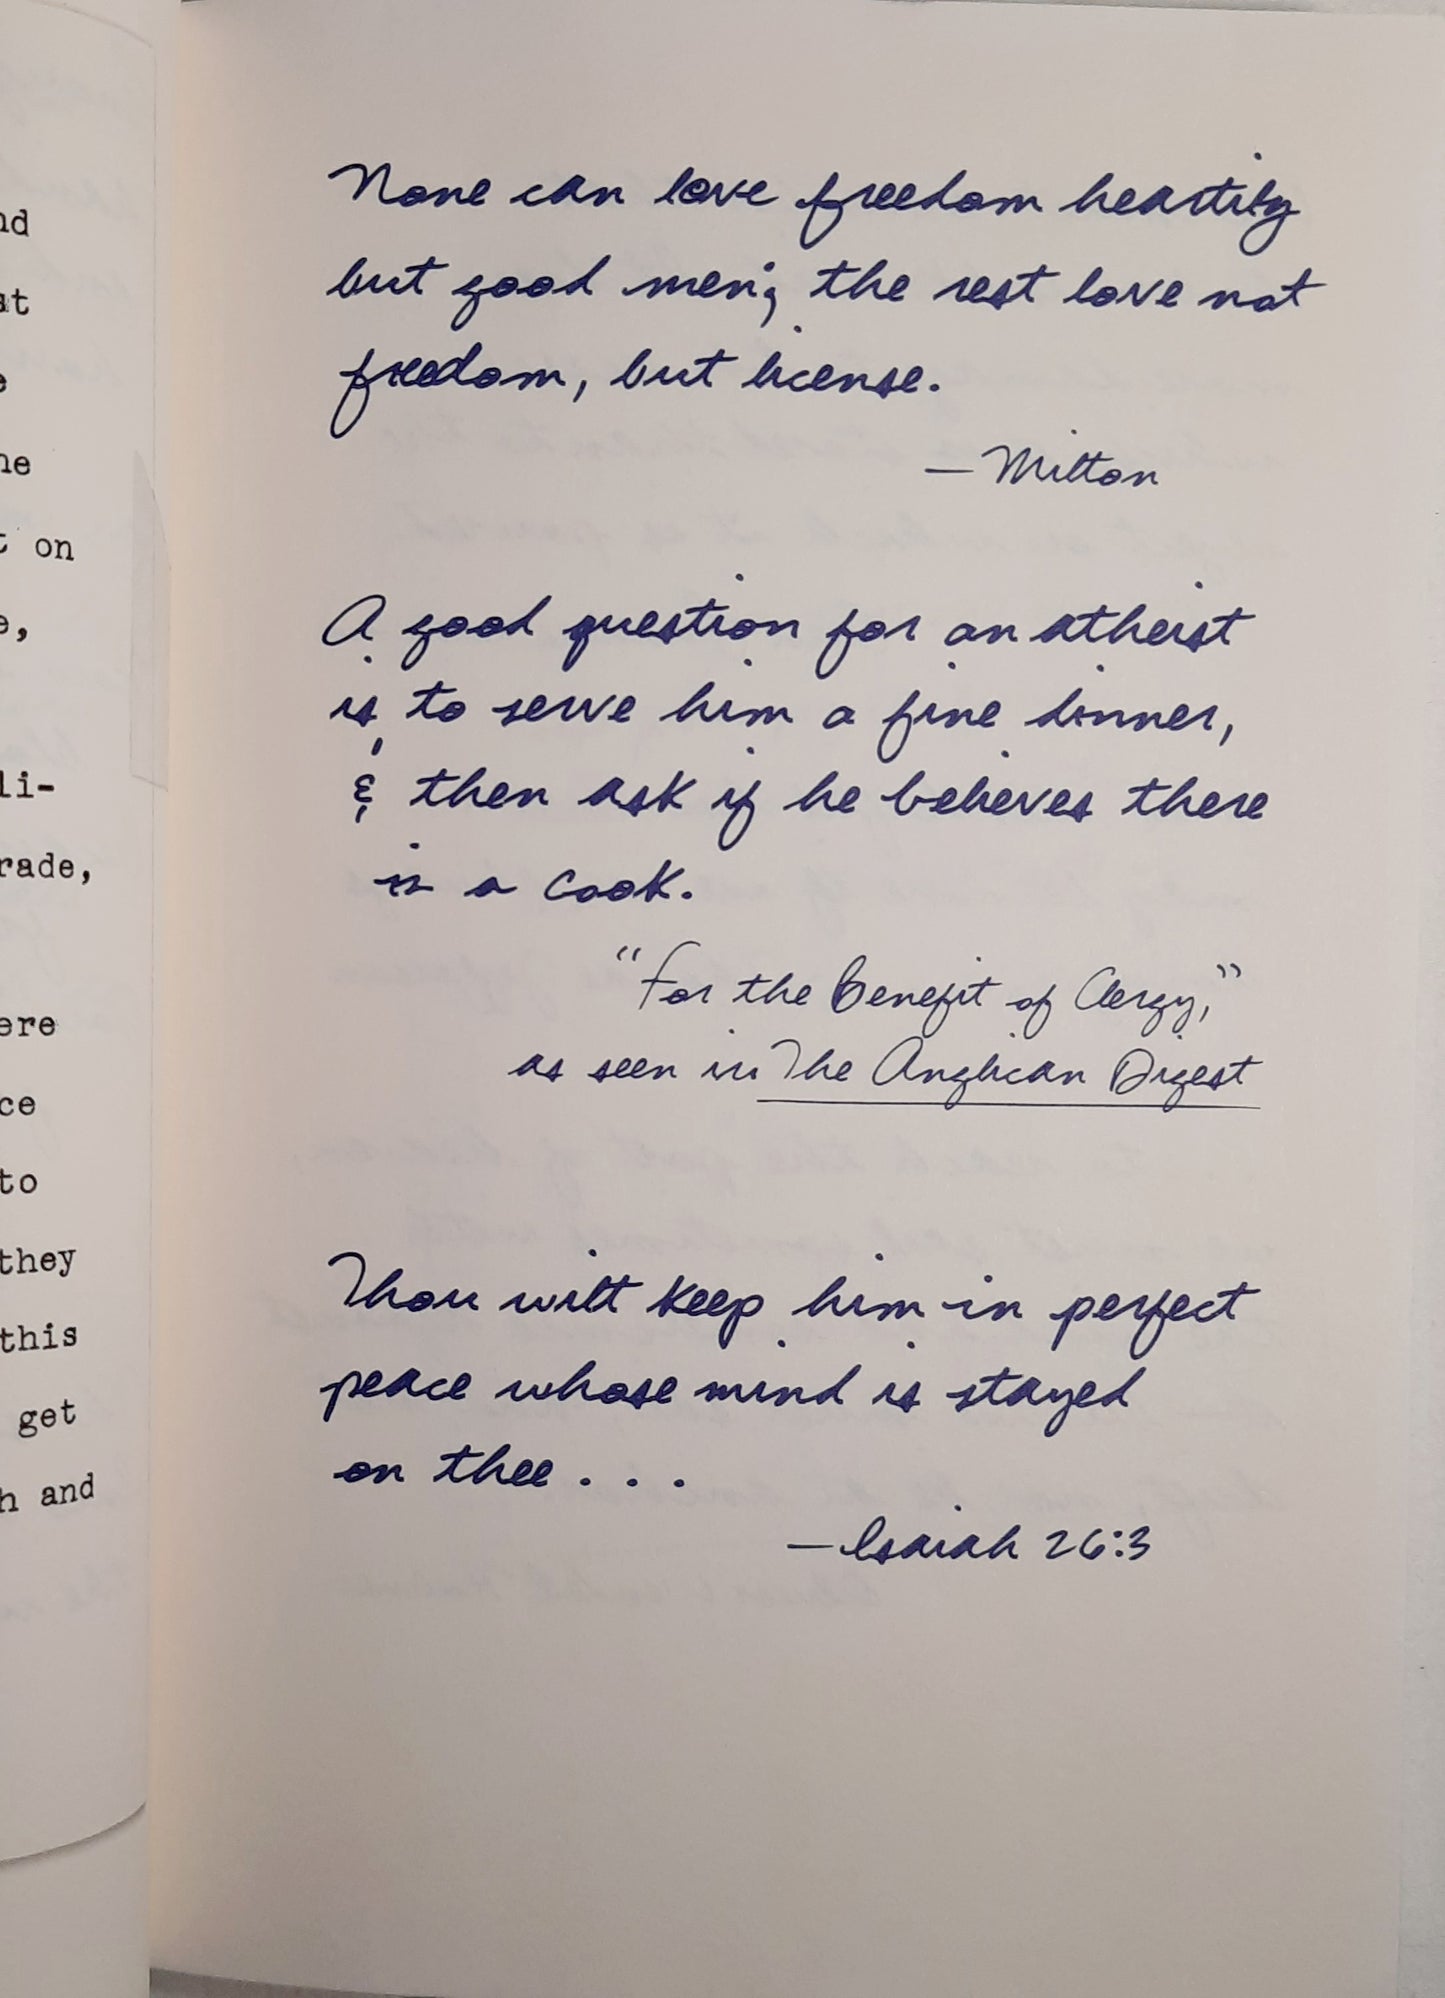 nd
st
e
he
t on
e,
li-
rade,
ere
ce
to
they
this
get
h and
None can love freedom heartily
but good men; the rest love not
freedom, but license.
—Milton
A good question for an atheist
is to serve him a fine dinner,
& then ask if he believes there
is a cook.
"For the Benefit of Clergy,"
as seen in The Anglican Digest
Thou wilt keep him in perfect
peace whose mind is stayed
on thee . . .
—Isaiah 26:3